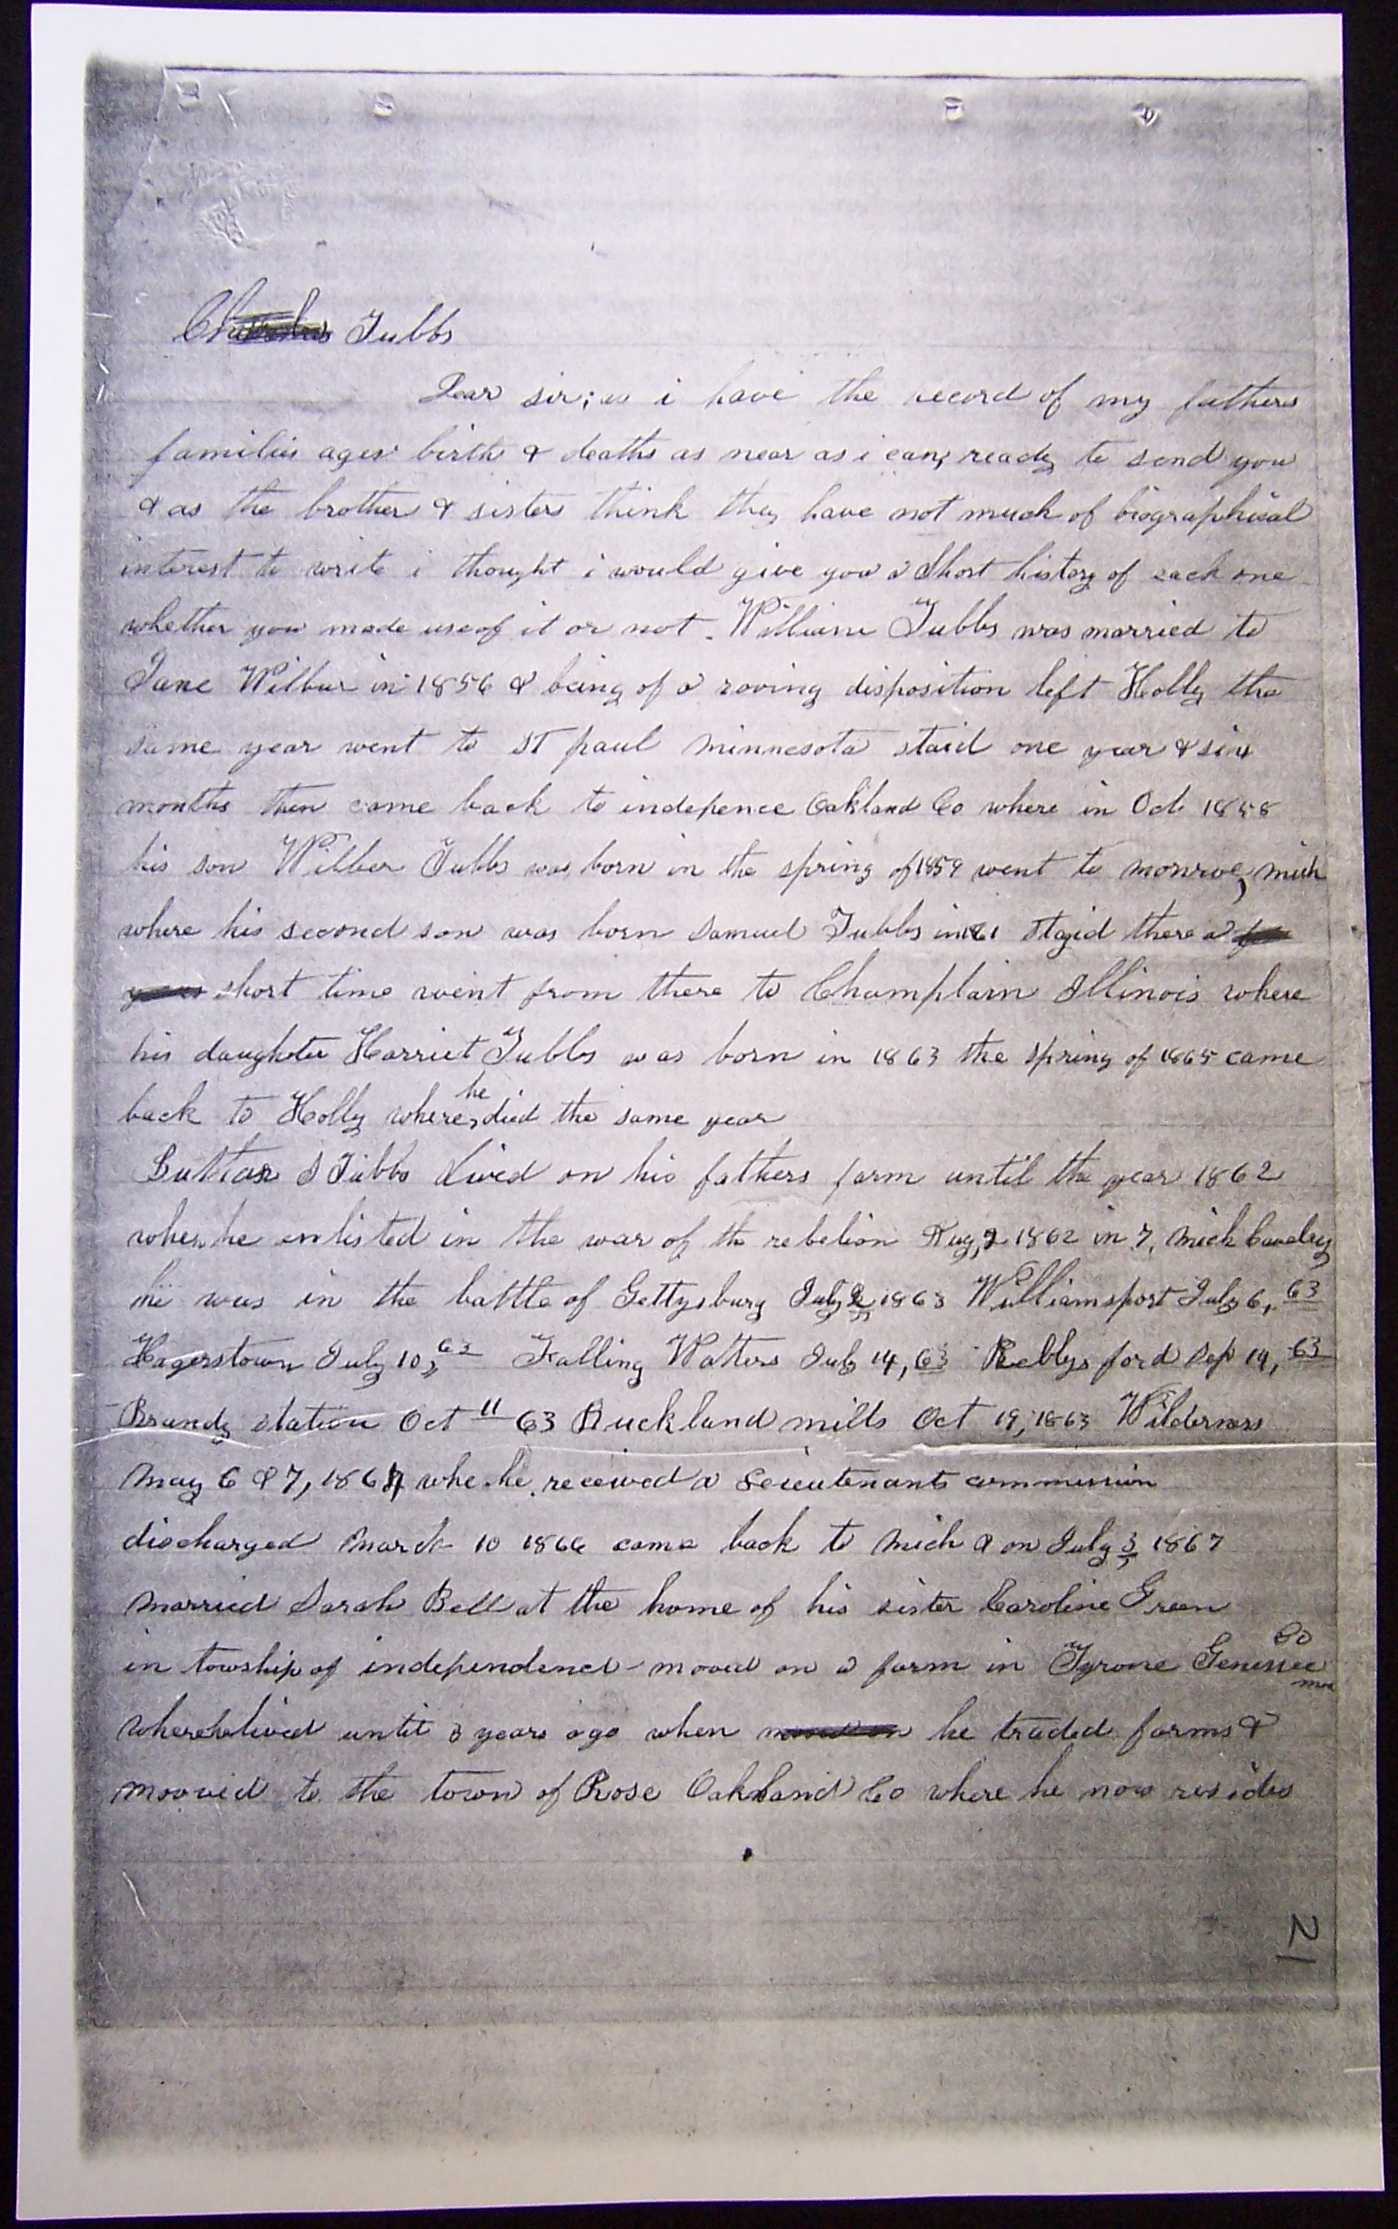 Charles Tubbs
Dear sir; as i have the record of my fathers
families ages birth & deaths as near as i can, ready to send you
& as the brother & sister think they have not much of biographical
interest to write i thought i would give you a short history of each one
whether you made use of it or not. William Tubbs was married to
Jane Wilbur in 1856 & being of a roving disposition left Holly the
same year went to ST paul minnesota staid one year & six
months then came back to indepence Oakland Co where in Oct 1858
his son Wilber Tubbs was born in the spring of 1859 went to monroe, mich
where his second son was born Samuel Tubbs in 1861 staid there a few
years short time went from there to Champlain Illinois where
his daughter Harriet Tubbs was born in 1863 the spring of 1865 came
back to Holly where he died the same year
S Tubbs Lived on his fathers farm until the year 1862
when he enlisted in the war of the rebelion Aug, 2 1862 in 7, mich Cavalry
he was in the battle of Gettysburg July 2, 1863 Williamsport July 6, 63
Hagerstown July 10, 63 Falling Watters July 14, 63 ford Sep 19, 63
Brandy station Oct 11 63 Buckland mills Oct 19, 1863 Wilderness
may 6 & 7, 1864 whe he received a Leieutenants commission
discharged march 10 1866 came back to mich & on July 3, 1867
married Sarah Bell at the home of his sister Caroline Green
in towship of independence mooved on a farm in Tyrone Genessee Co
where he lived until 3 years ago when mooved on he traded farms &
mooved to the town of Rose Oakland Co where he now resides
21